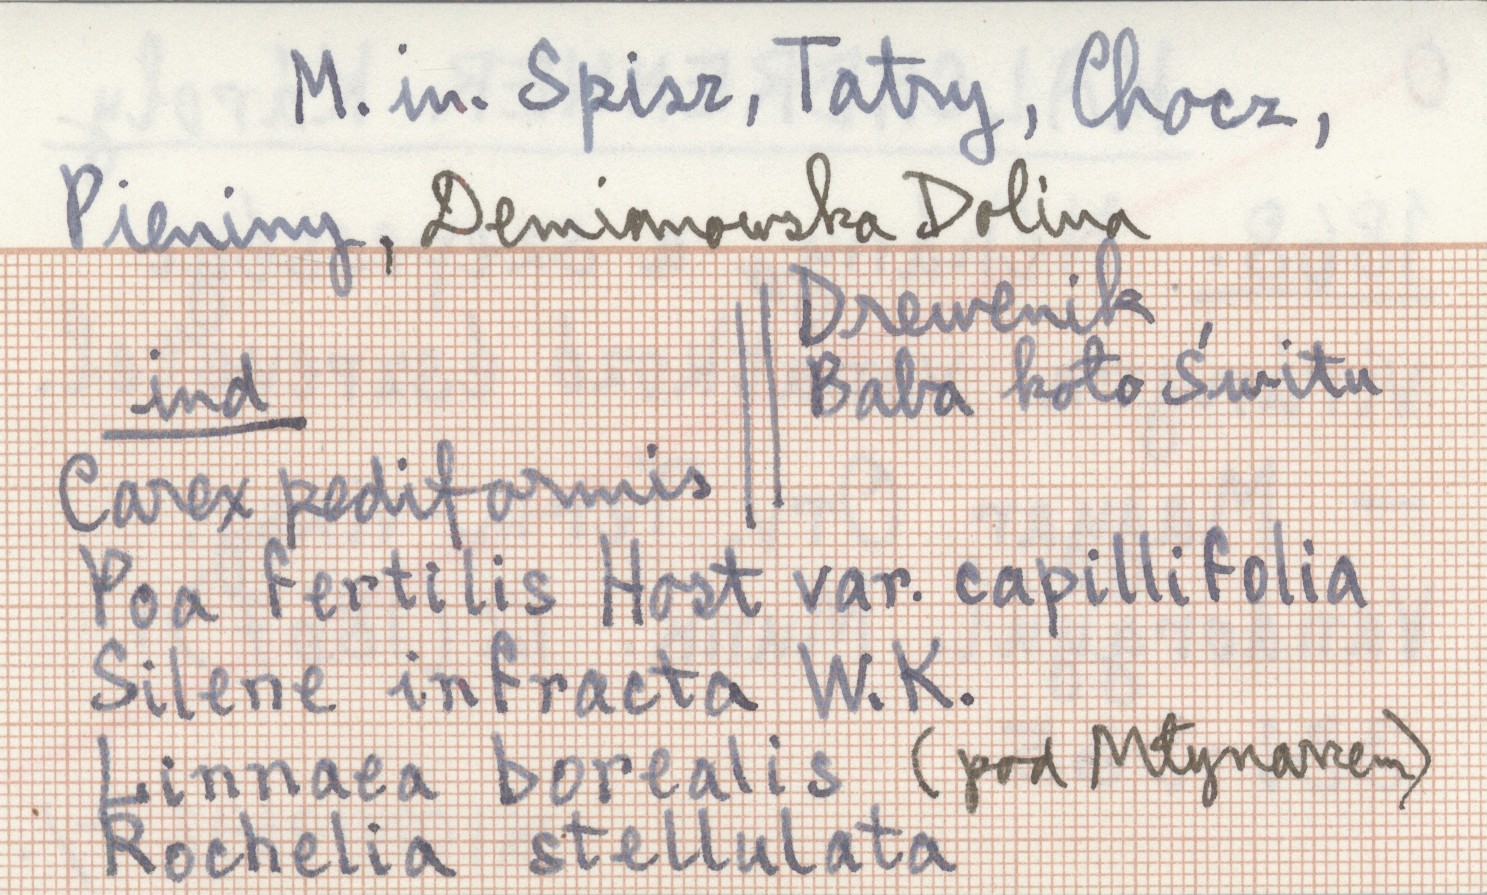 M. in. Spisz, Tatry, Chocz,
Pieniny, Demianowska Dolina
Drewenik,
Baba koło Świtu
ind
Carex pediformis
Poa fertilis Host var. capillifolia
Silene infracta W.K.
Linnaea borealis (pod Młynarzem)
Rochelia stellulata